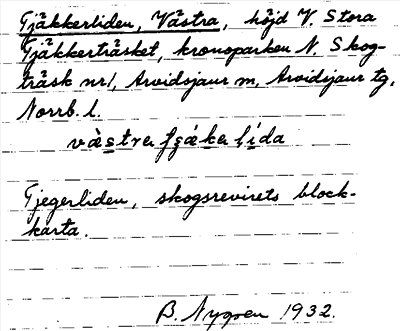 Tjäkkerliden, Västra, höjd V. Stora
Tjäkkerträsket, kronoparken N. Skog-
träsk nr 1, Arvidsjaur sn, Arvidsjaur tg,
Norrb. l.
västra
Tjegerliden, skogsrevirets block-
karta.
B. Nygren 1932.